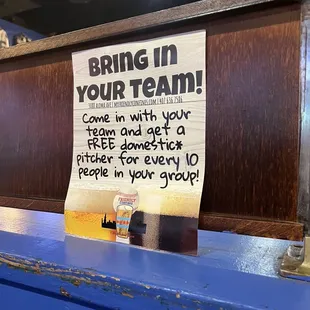 BRING IN
YOUR TEAM!
Come in with your
team and get a
FREE domestic*
pitcher for every 10
people in your group!